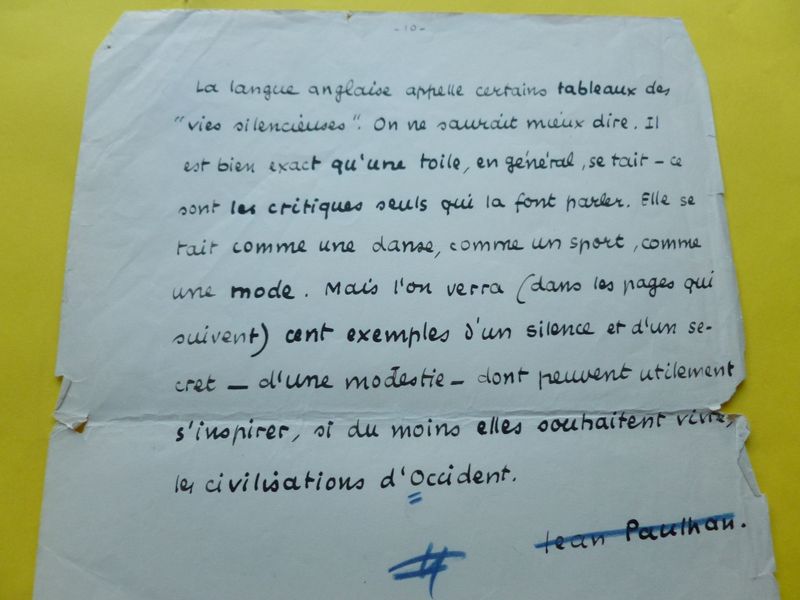 - 10 -
La langue anglaise appelle certains tableaux des
"vies silencieuses". On ne saurait mieux dire. Il
est bien exact qu'une toile, en général, se tait - ce
sont les critiques seuls qui la font parler. Elle se
tait comme une danse, comme un sport, comme
une mode. Mais l'on verra (dans les pages qui
suivent) cent exemples d'un silence et d'un se-
cret - d'une modestie - dont peuvent utilement
s'inspirer, si du moins elles souhaitent vivre,
les civilisations d'Occident.
Jean Paulhan.